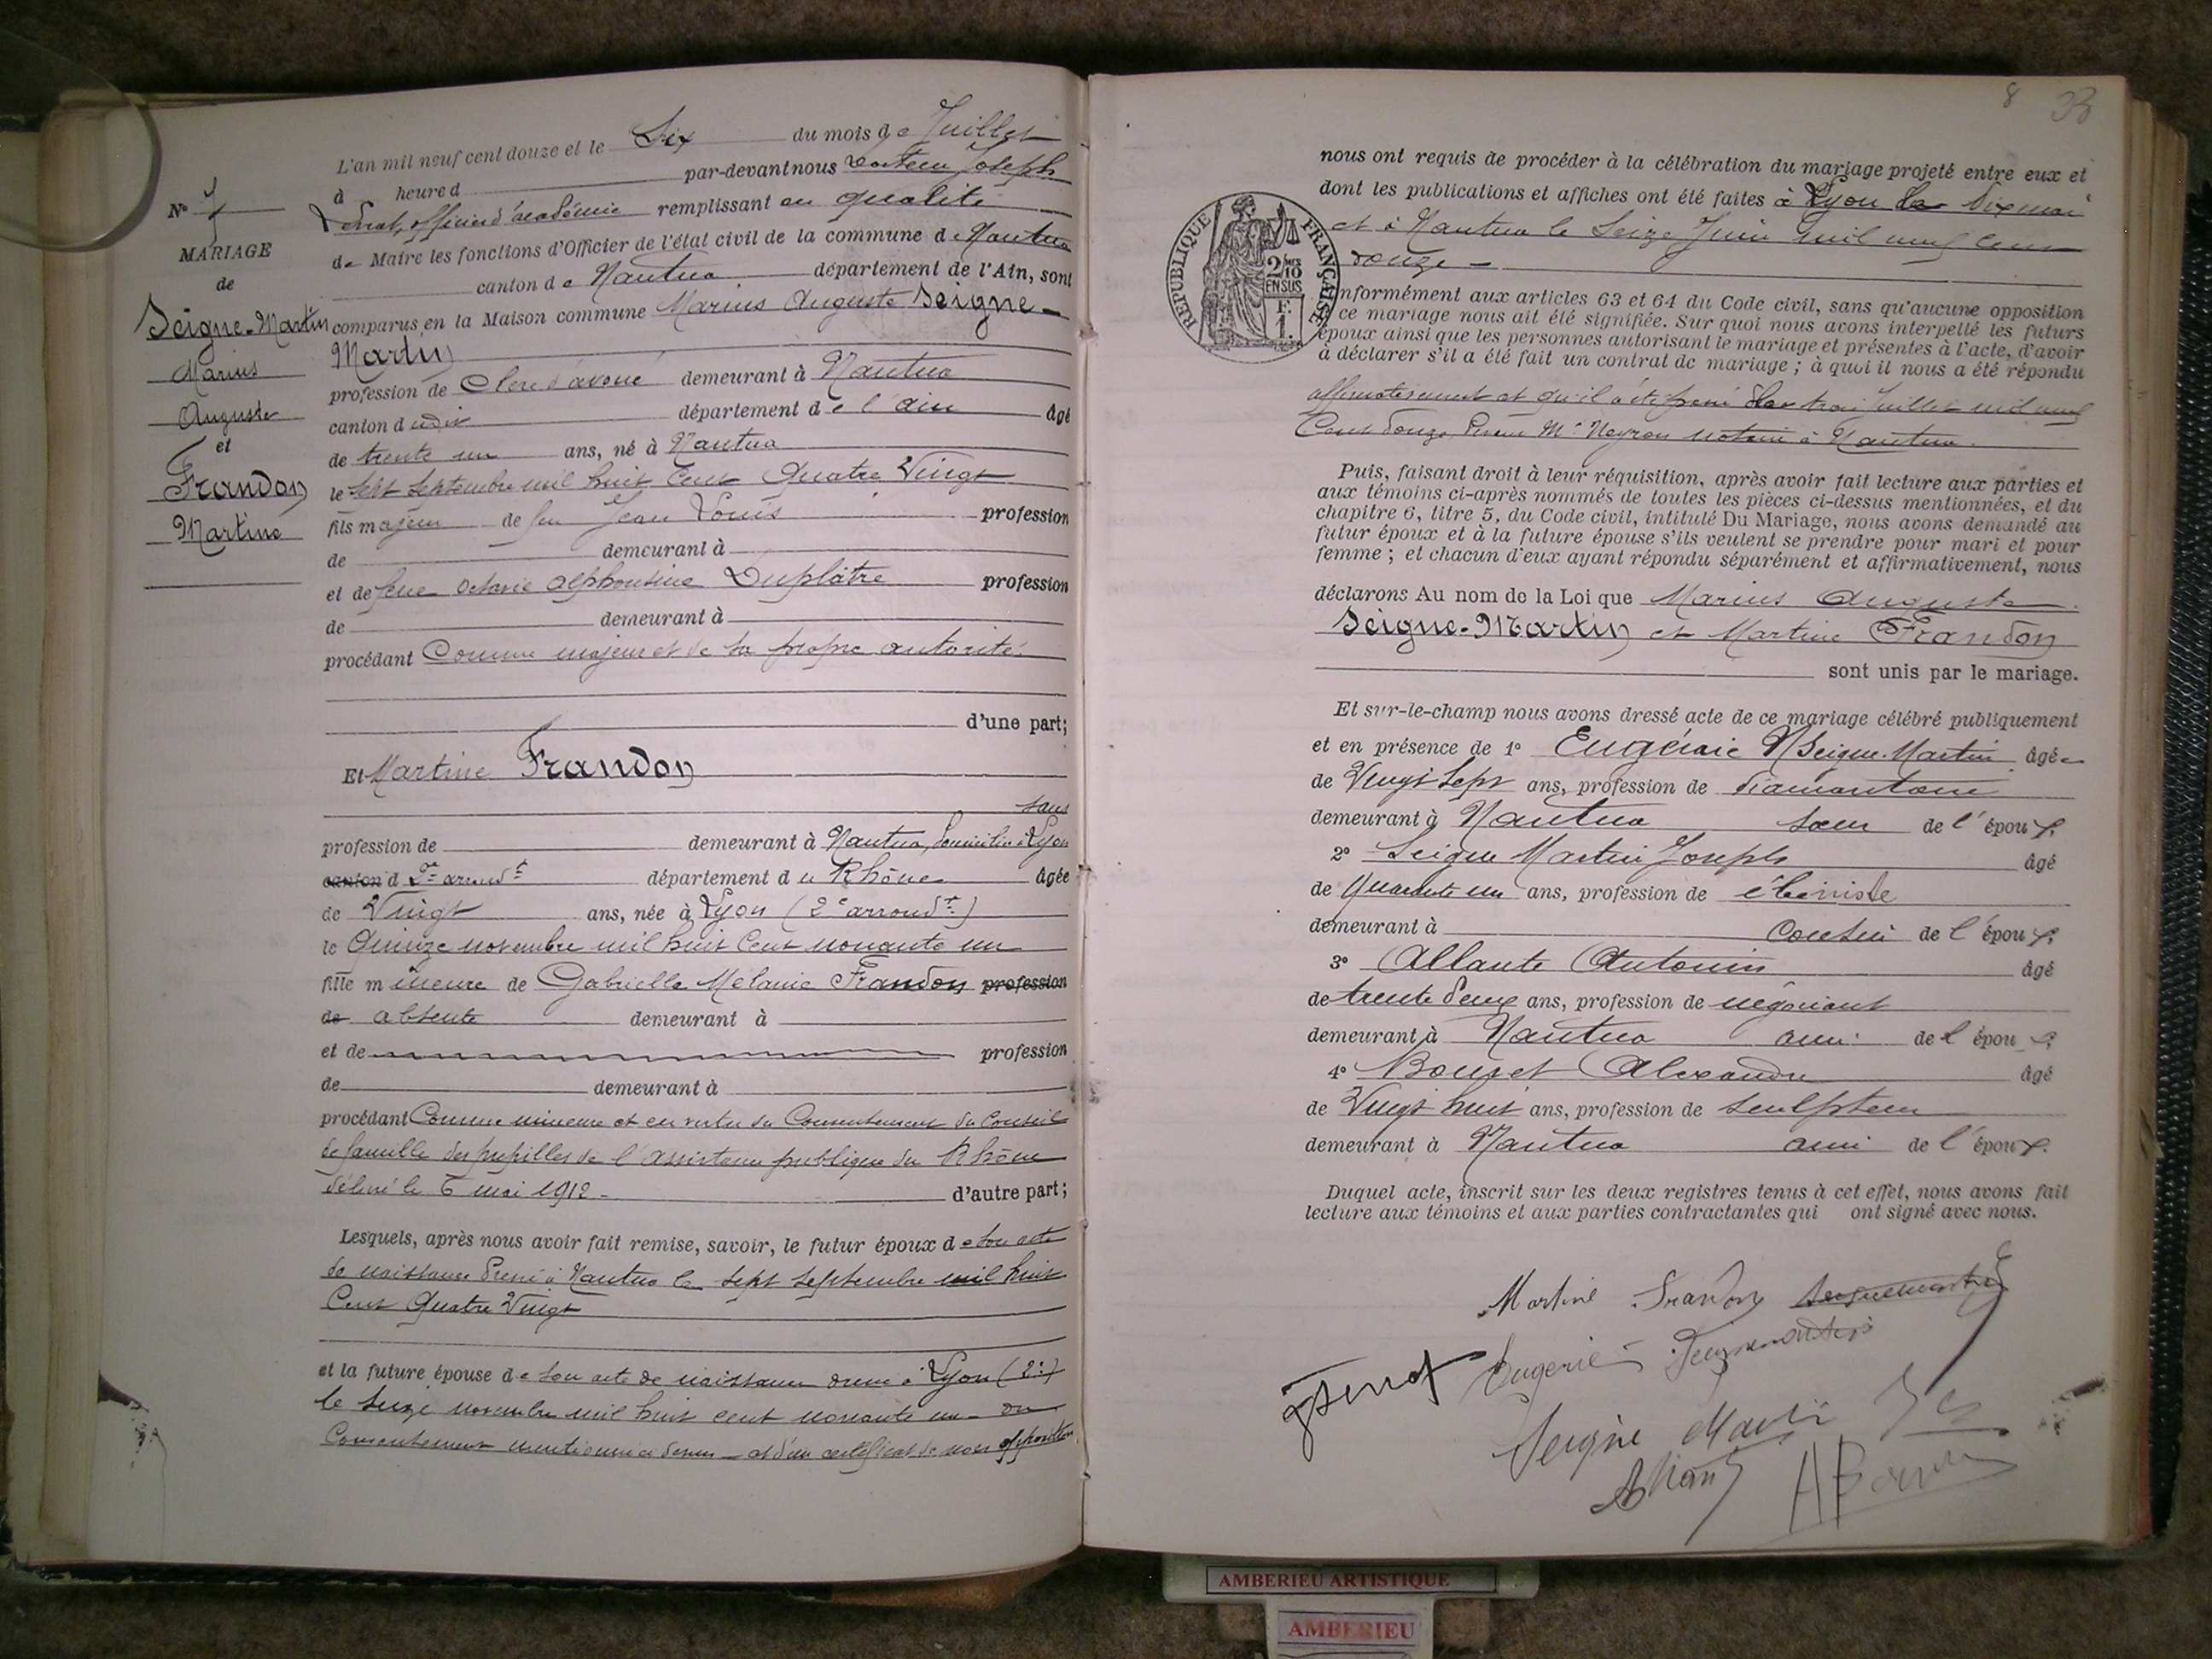 L'an mil neuf cent douze et le Six du mois de Juillet
à heure d par-devant nous Docteur Joseph
officier d'académie remplissant en qualité
de Maire les fonctions d'Officier de l'état civil de la commune de Nantua
canton de Nantua département de l'Ain, sont
comparus en la Maison commune Marius Auguste Seigne-
Martin
profession de Clerc d'avoué demeurant à Nantua
canton dudit département de l'ain âgé
de trente un ans, né à Nantua
le sept septembre mil huit Cent Quatre Vingt
fils majeur de feu Jean Louis profession
de demeurant à
et de feue Octavie alphonsine Duplâtre profession
de demeurant à
procédant Comme majeur et de sa propre autorité
d'une part;
N° 7
MARIAGE
de
Seigne-Martin
Marius
Auguste
et
Frandon
Martine
Et Martine Frandon
sans
profession de demeurant à Nantua, domiciliée à Lyon
canton d 2e arrondt département du Rhône âgée
de Vingt ans, née à Lyon (2e arrondt)
le Quinze novembre mil huit Cent nonante un
fille mineure de Gabrielle Mélanie Frandon profession
de absente demeurant à
et de profession
de demeurant à
procédant Comme mineure et en vertu du Consentement du Conseil
de famille des pupilles de l'assistance publique du Rhône
délivré le 6 mai 1912 d'autre part;
Lesquels, après nous avoir fait remise, savoir, le futur époux de son acte
de naissance dressé à Nantua le sept septembre mil huit
Cent Quatre Vingt
et la future épouse de son acte de naissance dressé à Lyon (2e)
le seize novembre mil huit cent nonante un - du
Consentement mentionné ci dessus - et d'un certificat de non opposition
8 33
nous ont requis de procéder à la célébration du mariage projeté entre eux et
dont les publications et affiches ont été faites à Lyon le dix mai
et à Nantua le Seize Juin mil neuf cent
douze -
RÉPUBLIQUE FRANÇAISE
2/10 EN SUS
F. 1.
nformément aux articles 63 et 64 du Code civil, sans qu'aucune opposition
ce mariage nous ait été signifiée. Sur quoi nous avons interpellé les futurs
époux ainsi que les personnes autorisant le mariage et présentes à l'acte, d'avoir
à déclarer s'il a été fait un contrat de mariage ; à quoi il nous a été répondu
affirmativement et qu'il a été passé le trois Juillet mil neuf
Cent douze devant Me Neyron notaire à Nantua.
Puis, faisant droit à leur réquisition, après avoir fait lecture aux parties et
aux témoins ci-après nommés de toutes les pièces ci-dessus mentionnées, et du
chapitre 6, titre 5, du Code civil, intitulé Du Mariage, nous avons demandé au
futur époux et à la future épouse s'ils veulent se prendre pour mari et pour
femme ; et chacun d'eux ayant répondu séparément et affirmativement, nous
déclarons Au nom de la Loi que Marius Auguste
Seigne-Martin et Martine Frandon
sont unis par le mariage.
Et sur-le-champ nous avons dressé acte de ce mariage célébré publiquement
et en présence de 1° Eugénie Seigne-Martin âgée
de Vingt Sept ans, profession de diamantaire
demeurant à Nantua sœur de l'époux.
2° Seigne Martin Joseph âgé
de Quarante un ans, profession de ébéniste
demeurant à cousin de l'époux.
3° Allante Antonin âgé
de trente deux ans, profession de négociant
demeurant à Nantua ami de l'époux
4° Bouget Alexandre âgé
de Vingt huit ans, profession de sculpteur
demeurant à Nantua ami de l'époux.
Duquel acte, inscrit sur les deux registres tenus à cet effet, nous avons fait
lecture aux témoins et aux parties contractantes qui ont signé avec nous.
Martine Frandon Seignemartin
Eugenie Seignemartin
Seigne Martin
AMBERIEU ARTISTIQUE
AMBERIEU